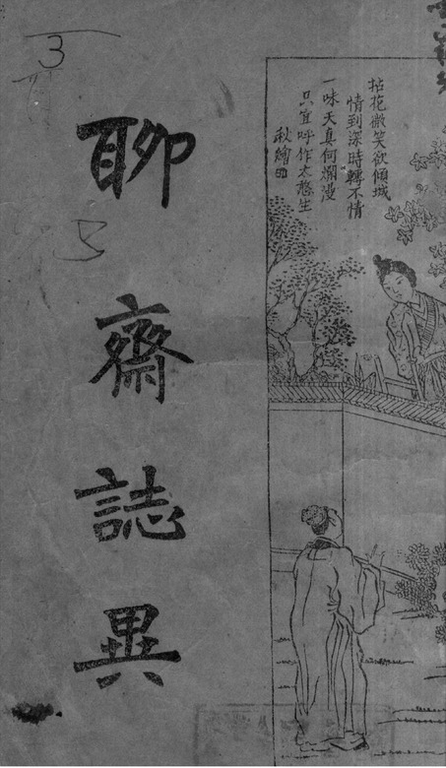 拈花微笑欲傾城
情到深時轉不情
一味天真何爛漫
只宜呼作太憨生
秋繪
聊齋誌異
3
5